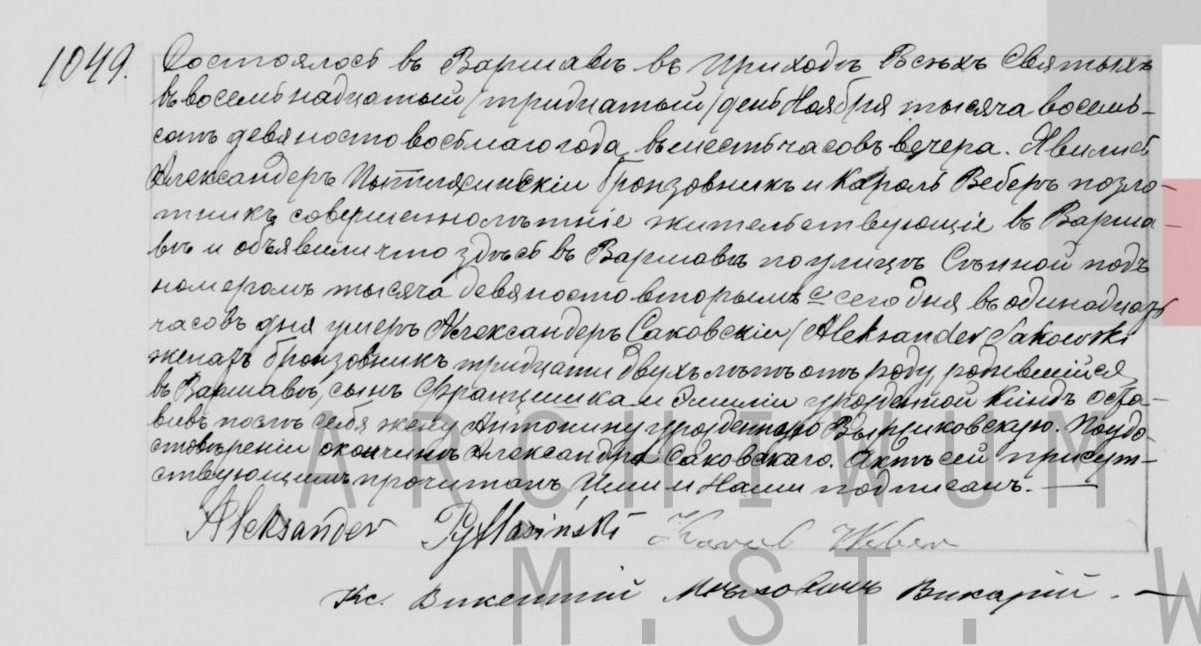 1049. Состоялось въ Варшавѣ въ приходѣ Всѣхъ Святыхъ
въ восемьнадцатый /тридцатый/ день Ноября тысяча восемь-
сотъ девяносто восьмаго года, въ шесть часовъ вечера. Явились
Александеръ Пытлясинскій бронзовникъ и Кароль Веберъ позло-
тникъ совершеннолѣтніе жительствующіе въ Варша-
вѣ и объявили что здѣсь въ Варшавѣ по улицѣ Сѣнной подъ
номеромъ тысяча девяносто вторымъ с сего дня въ одинадцать
часовъ дня умеръ Александеръ Саковскій /Aleksander Sakowski
женатъ бронзовникъ тридцати двухъ лѣтъ отъ роду, родившійся
въ Варшавѣ, сынъ Францишка и Эмиліи урожденной Киндъ оста-
вивъ послѣ себя жену Антонину урожденную Выржиковскую. По удо-
стовѣреніи о кончинѣ Александра Саковскаго. Актъ сей присут-
ствующимъ прочитанъ Ими и Нами подписанъ. —
Aleksander Pytlasiński Karol Weber
Кс. Викентій Викарій. —
ARCHIWUM
M.ST.W